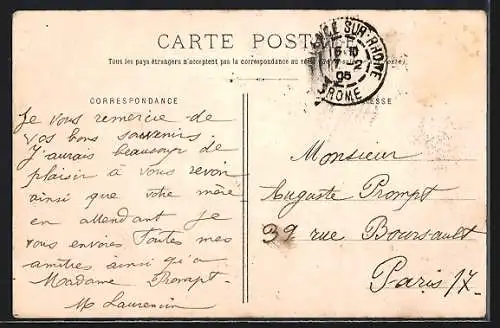 CARTE POSTALE
Tous les pays étrangers n'acceptent pas la correspondance au
SUR-RHONE
6 10
7 - 2
05
DROME
CORRESPONDANCE
ADRESSE
Je vous remercie de
vos bons souvenirs.
J'aurais beaucoup de
plaisir à vous revoir
ainsi que votre mère
en attendant je
vous envoies toutes mes
amitiés ainsi qu'a
Madame Prompt.
M Laurencin
Monsieur
Auguste Prompt
39 rue Boursault
Paris 17.